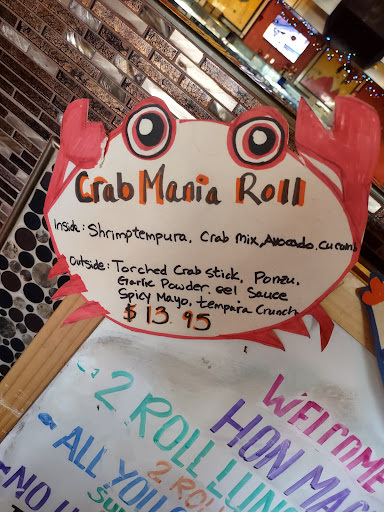 Crab Mania Roll
Inside: Shrimptempura, Crab mix, Avocado, cucumb
Outside: Torched Crab stick, Ponzu,
Garlic Powder, eel Sauce
Spicy Mayo, tempara Crunch
$ 13.95
WELCOME
HON MA
2 ROLL LUN
ALL YOU
2 RO
NO